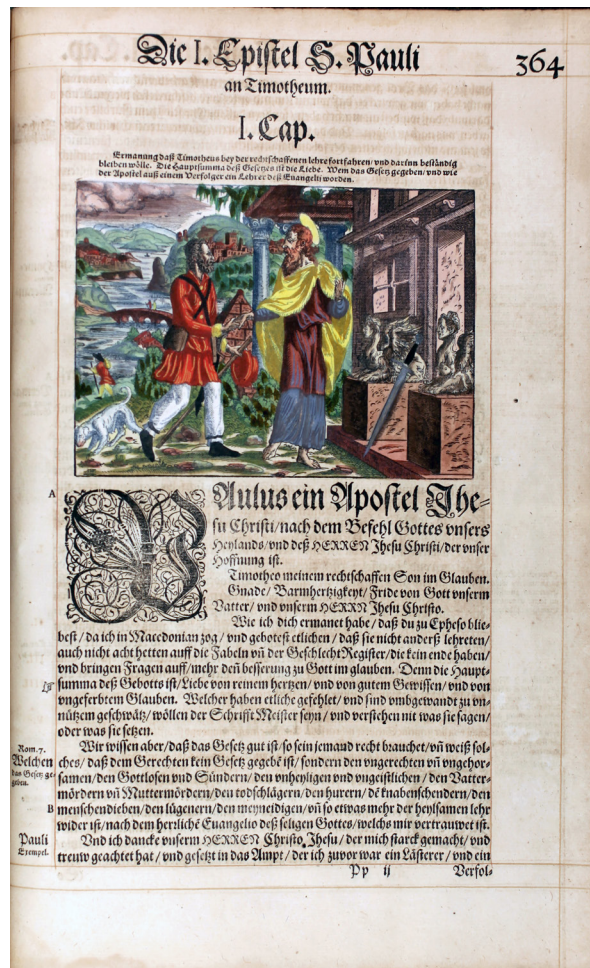 Die I. Epistel S. Pauli
364
an Timotheum.
I. Cap.
Ermanung daß Timotheus bey der rechtschaffenen lehre fortfahren/ vnd darinn beständig
bleiben wölle. Die Hauptsumma deß Gesetzes ist die Liebe. Wem das Gesetz gegeben/ vnd wie
der Apostel auß einem Verfolger ein Lehrer deß Euangelii worden.
A
PAulus ein Apostel Jhe-
su Christi/ nach dem Befehl Gottes vnsers
Heylands/ vnd deß HERREN Jhesu Christi/ der vnser
Hoffnung ist.
Timotheo meinem rechtschaffen Son im Glauben.
Gnade/ Barmhertzigkeyt/ Fride von Gott vnserm
Vatter/ vnd vnserm HERRN Jhesu Christo.
Wie ich dich ermanet habe/ daß du zu Epheso blie-
best/ da ich in Macedonian zog/ vnd gebotest etlichen/ daß sie nicht anderß lehreten/
auch nicht acht hetten auff die Fabeln vñ der GeschlechtRegister/ die kein ende haben/
vnd bringen Fragen auff/ mehr deñ besserung zu Gott im glauben. Denn die Haupt-
summa deß Gebotts ist/ Liebe von reinem hertzen/ vnd von gutem Gewissen/ vnd von
vngeferbtem Glauben. Welcher haben etliche gefehlet/ vnd sind vmbgewandt zu vn-
nützem geschwätz/ wöllen der Schrifft Meister seyn/ vnd verstehen nit was sie sagen/
oder was sie setzen.
Rom. 7.
Welchen
das Gesetz ge-
geben.
Wir wissen aber/ daß das Gesetz gut ist/ so sein jemand recht brauchet/ vñ weiß sol-
ches/ daß dem Gerechten kein Gesetz gegebē ist/ sondern den vngerechten vñ vngehor-
samen/ den Gottlosen vnd Sündern/ den vnheyligen vnd vngeistlichen/ den Vatter-
mördern vñ Muttermördern/ den todschlägern/ den hurern/ dē knabenschendern/ den
B
menschendieben/ den lügenern/ den meyneidigen/ vñ so etwas mehr der heylsamen lehr
wider ist/ nach dem herꝛlichē Euangelio deß seligen Gottes/ welchs mir vertrauwet ist.
Pauli
Exempel.
Vnd ich dancke vnserm HERREN Christo Jhesu/ der mich starck gemacht/ vnd
treuw geachtet hat/ vnd gesetzt in das Ampt/ der ich zuvor war ein Lästerer/ vnd ein
Pp ij
Verfol-